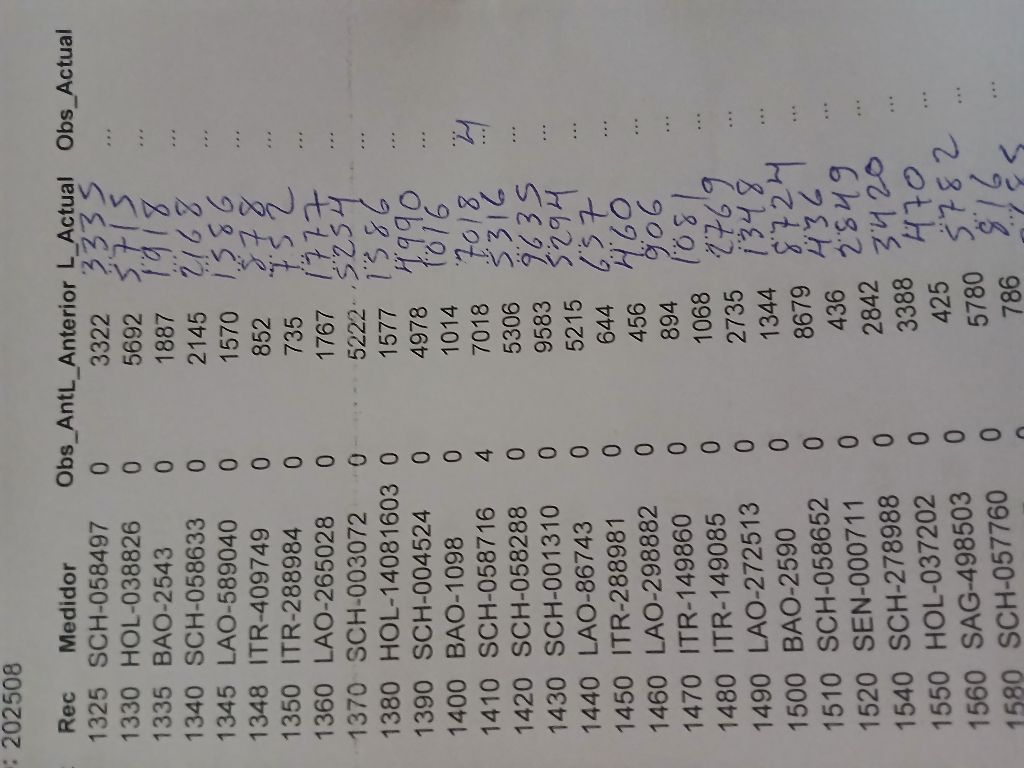 : 202508
Rec Medidor Obs_AntL_Anterior L_Actual Obs_Actual
1325 SCH-058497 0 3322 3335 ...
1330 HOL-038826 0 5692 5715 ...
1335 BAO-2543 0 1887 1918 ...
1340 SCH-058633 0 2145 2168 ...
1345 LAO-589040 0 1570 1586 ...
1348 ITR-409749 0 852 878 ...
1350 ITR-288984 0 735 752 ...
1360 LAO-265028 0 1767 1777 ...
1370 SCH-003072 0 5222 5254 ...
1380 HOL-14081603 0 1577 1586 ...
1390 SCH-004524 0 4978 4990 ...
1400 BAO-1098 0 1014 1016 ...
1410 SCH-058716 4 7018 7018 4
1420 SCH-058288 0 5306 5316 ...
1430 SCH-001310 0 9583 9635 ...
1440 LAO-86743 0 5215 5294 ...
1450 ITR-288981 0 644 657 ...
1460 LAO-298882 0 456 460 ...
1470 ITR-149860 0 894 906 ...
1480 ITR-149085 0 1068 1081 ...
1490 LAO-272513 0 2735 2769 ...
1500 BAO-2590 0 1344 1348 ...
1510 SCH-058652 0 8679 8724 ...
1520 SEN-000711 0 436 436 ...
1540 SCH-278988 0 2842 2849 ...
1550 HOL-037202 0 3388 3420 ...
1560 SAG-4985503 0 425 470 ...
1580 SCH-057760 0 5780 5782 ...
786 816 ...